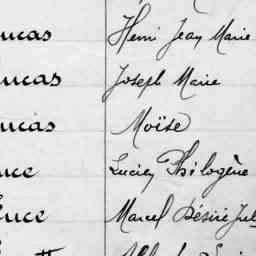 ucas Henri Jean Marie
ucas Joseph Marie
ucas Moïse
uce Lucien Philogène
uce Marcel Désiré Jul